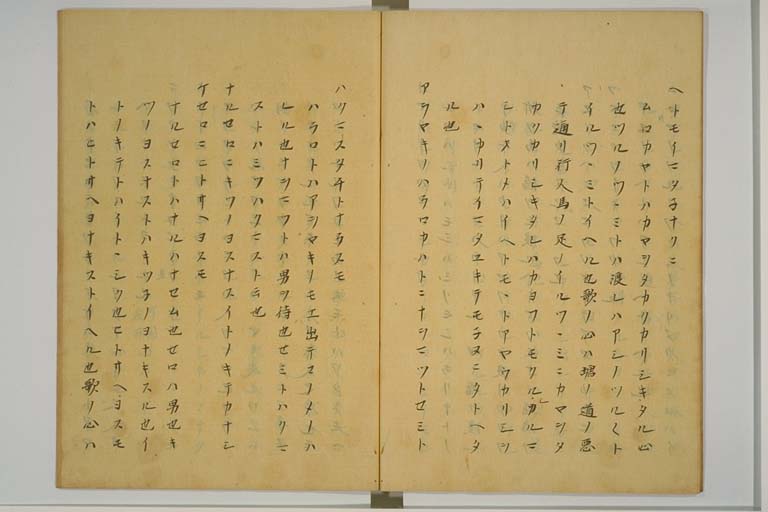 ヘトモイニタチナクニ
ムロカヤトハカマツタカリカリシキタル心
也ツルノウヽミトハ渡レハアシノツルヽト
イルウヽミトイヘル也歌ノ心ハ堀ノ道ノ悪
テ通リ行人馬ノ足ノイルウヽミニカマツタ
カツカリシキタレハカヨフトモクルヽカルニ
シトメトメハイヘトモヽトアヤウカリシン
ハヽカリテイニタユキテモチヌニタトヘタ
ル也
アラマキノハラロカハトニナシニツトセミト
ハツニスタチトナラスモ
ハラロトハアシマキノモエ出テスコノメーハ
レル也ナシニフトハ男ヲ待也セミトハクニ
ストハミツハクニスト云也
ナルセロニキツノヨスナスイトノキテカナシ
ケセロニニトサヘヨスモ
ナルセロトハナルハナセム也セロハ男也キ
ツノヨスナストハキツチノヨナキスル也イ
トノキテトハイトヽシク也ヒトサヘヽヨスモ
トハヒトサヘヨナキストイヘル也歌ノ心ハ